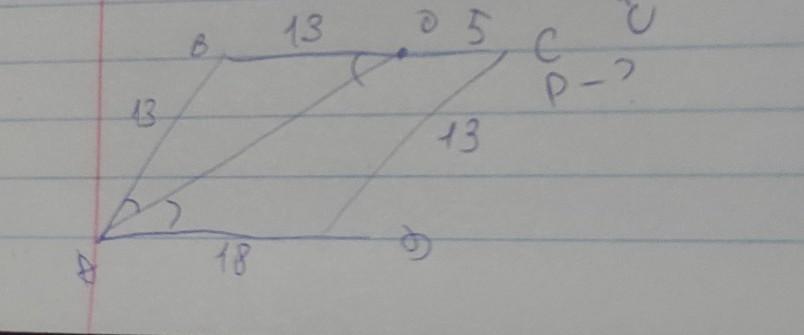 13 O 5 U
B C
P - ?
13
13
18 D
A